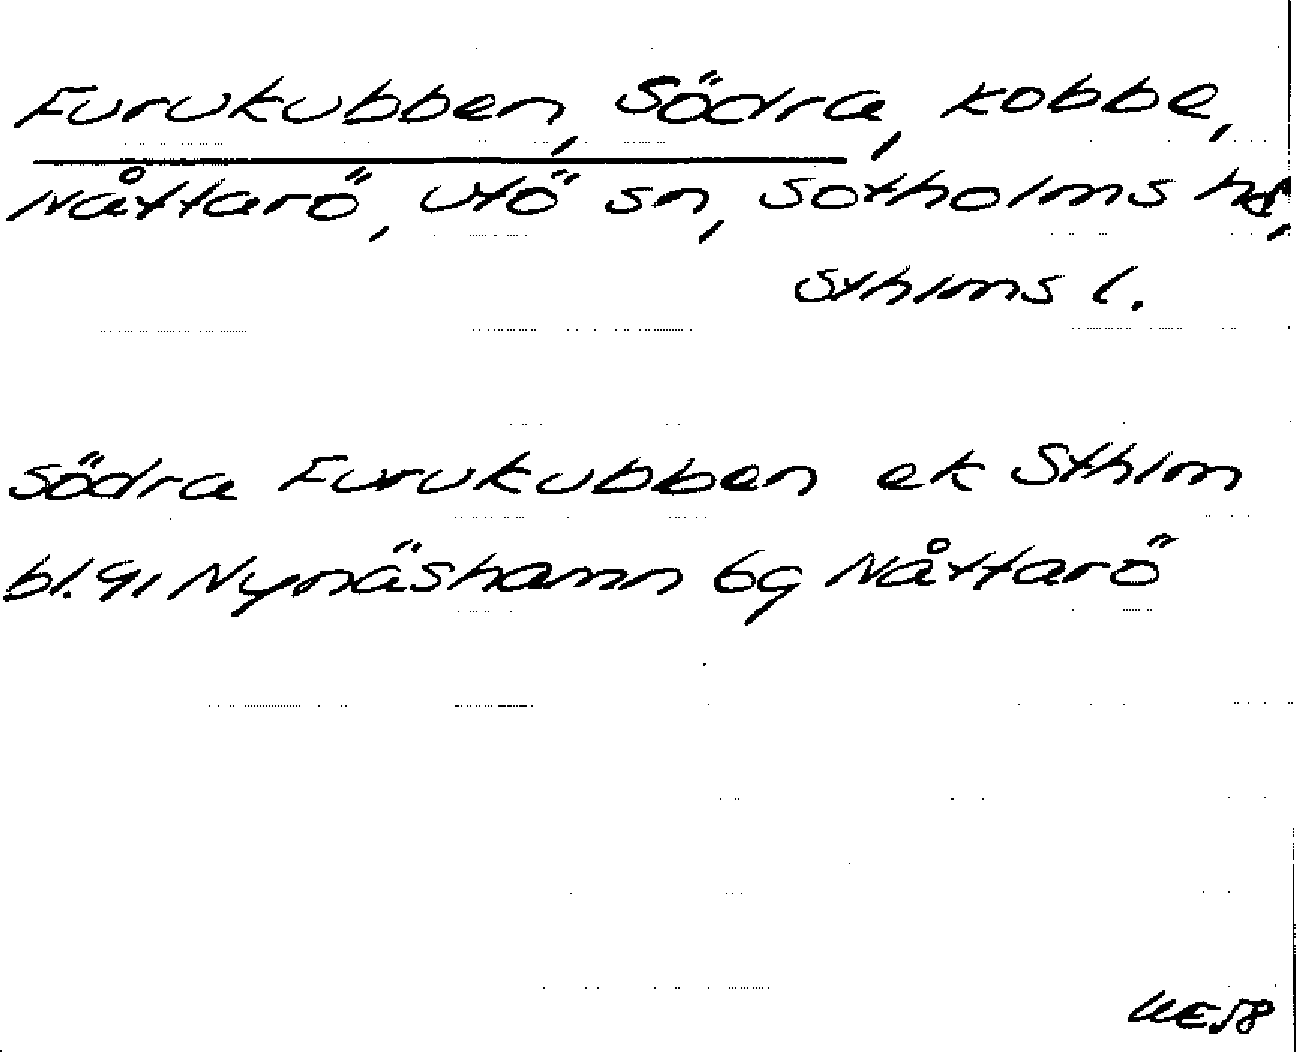 Furukubben, Södra, kobbe,
Nåttarö, Utö sn, Sotholms hd,
Sthlms l.
Södra Furukubben ek Sthlm
bl. 91 Nynäshamn 6g Nåttarö
UE58